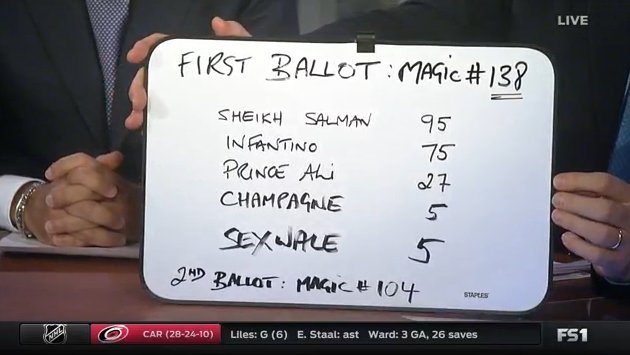 LIVE
FIRST BALLOT: MAGIC # 138
SHEIKH SALMAN 95
INFANTINO 75
PRINCE ALI 27
CHAMPAGNE 5
SEXWALE 5
2ND BALLOT: MAGIC # 104
STAPLES
NHL CAR (28-24-10) Liles: G (6) E. Staal: ast Ward: 3 GA, 26 saves FS1